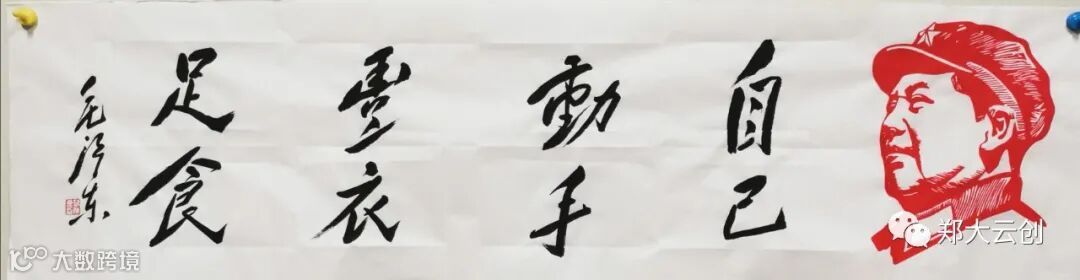 自己
動手
豐衣
足食
毛泽东
郑大云创
大数跨境